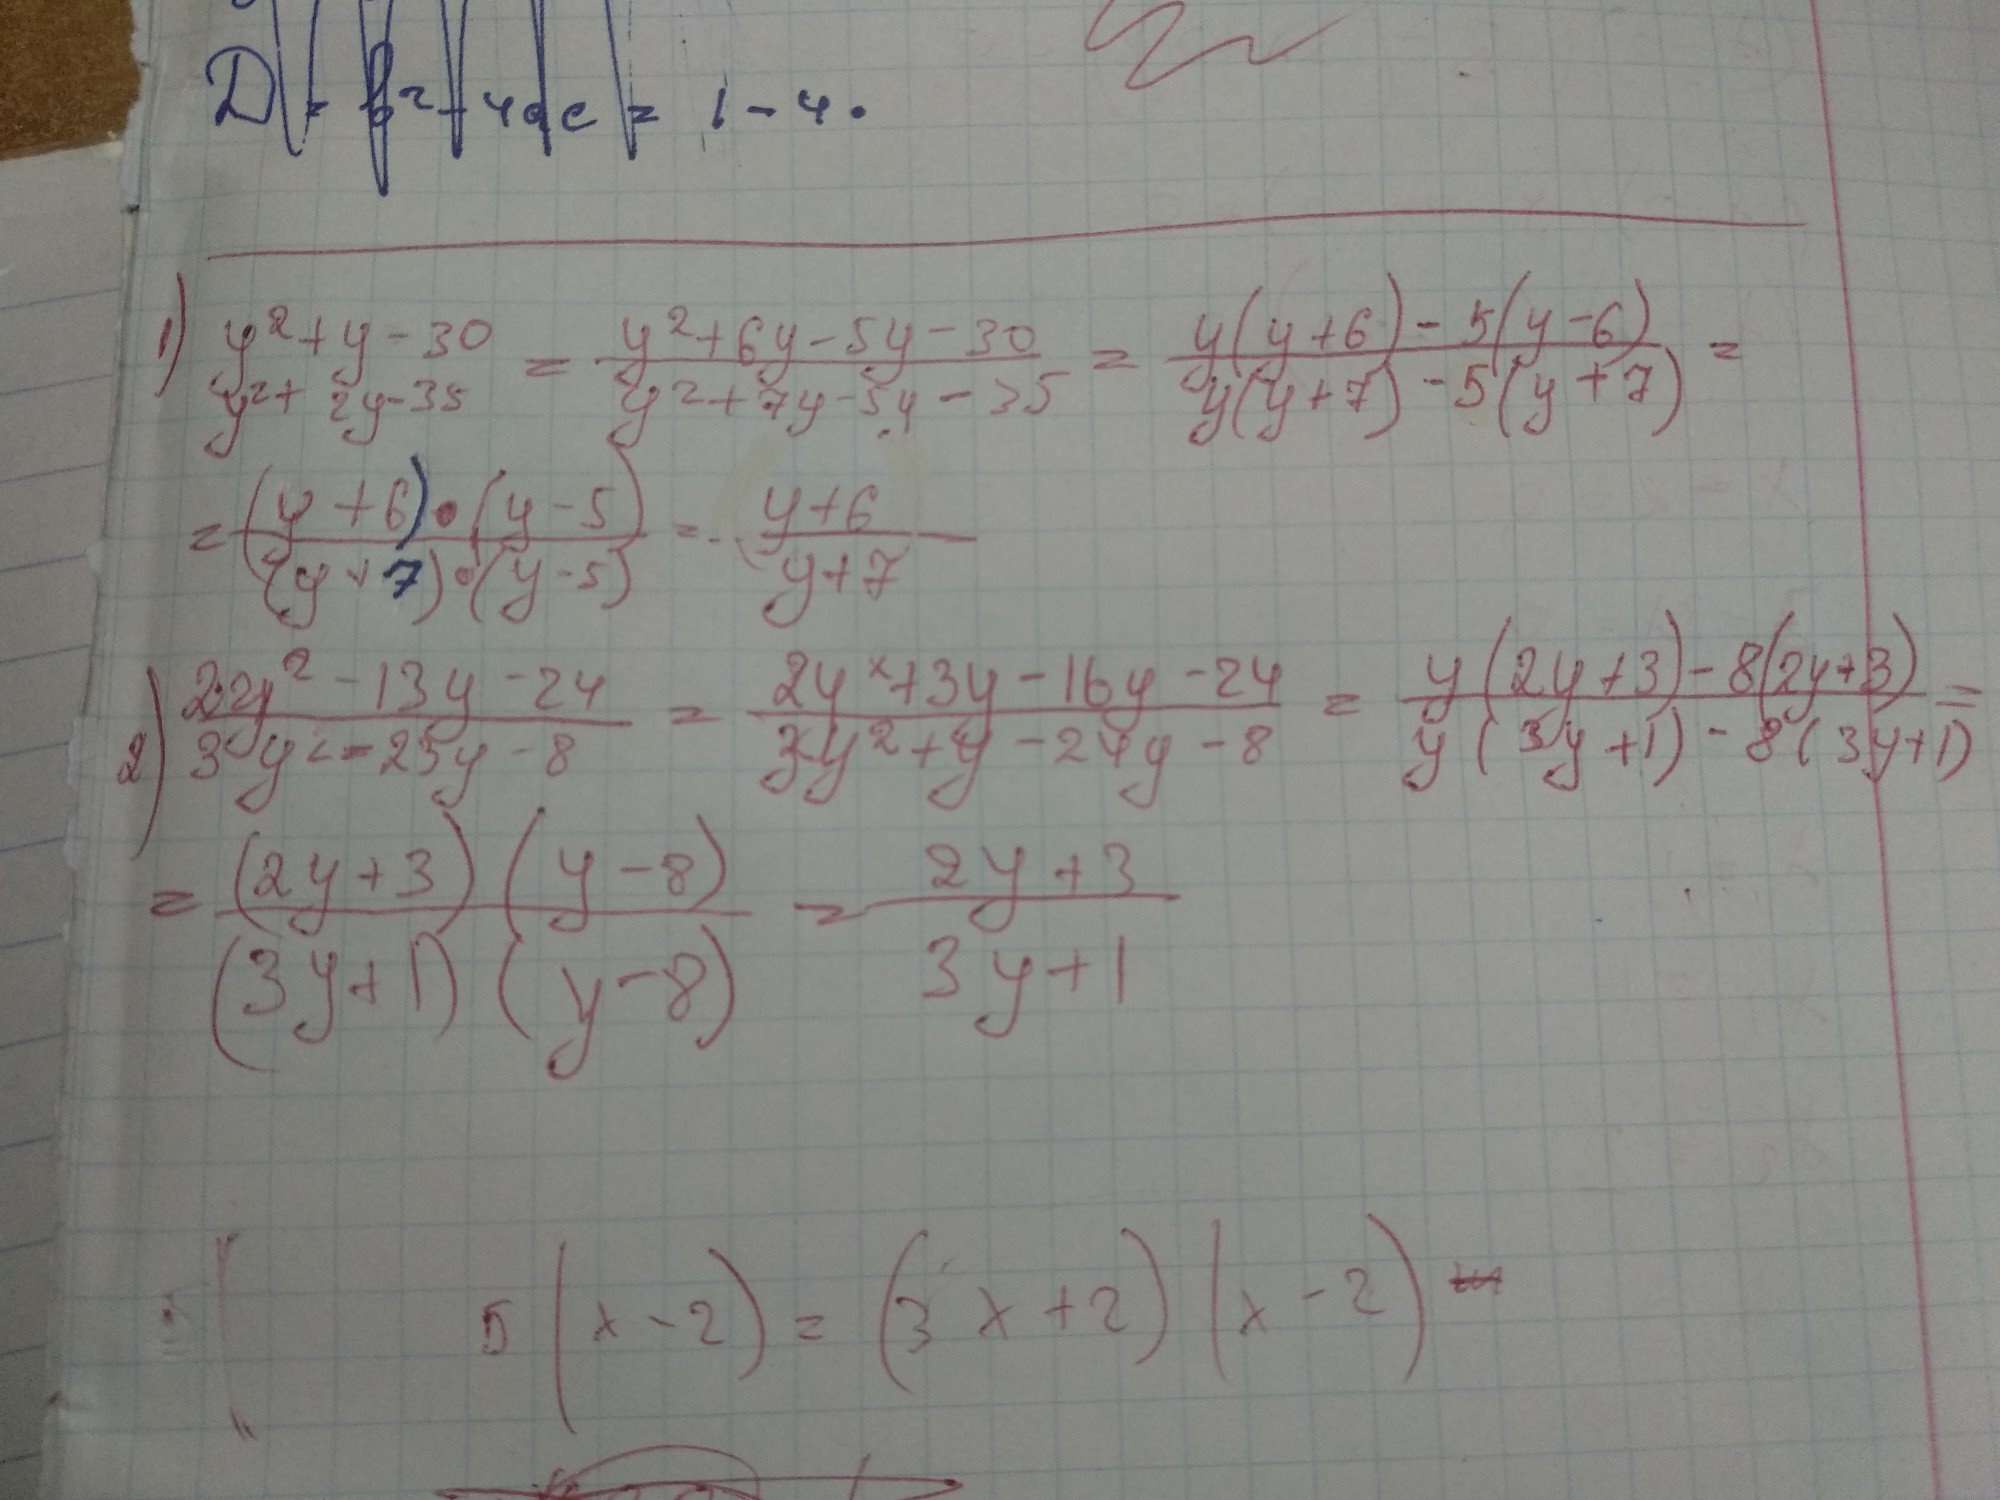 D = b² - 4ac = 1 - 4 ·
1) y²+y-30 / y²+2y-35 = y²+6y-5y-30 / y²+7y-5y-35 = y(y+6)-5(y-6) / y(y+7)-5(y+7) =
= (y+6)·(y-5) / (y+7)·(y-5) = y+6 / y+7
2) 2y²-13y-24 / 3y²-23y-8 = 2y²+3y-16y-24 / 3y²+y-24y-8 = y(2y+3)-8(2y+3) / y(3y+1)-8(3y+1) =
= (2y+3)(y-8) / (3y+1)(y-8) = 2y+3 / 3y+1
5(x-2) = (3x+2)(x-2)